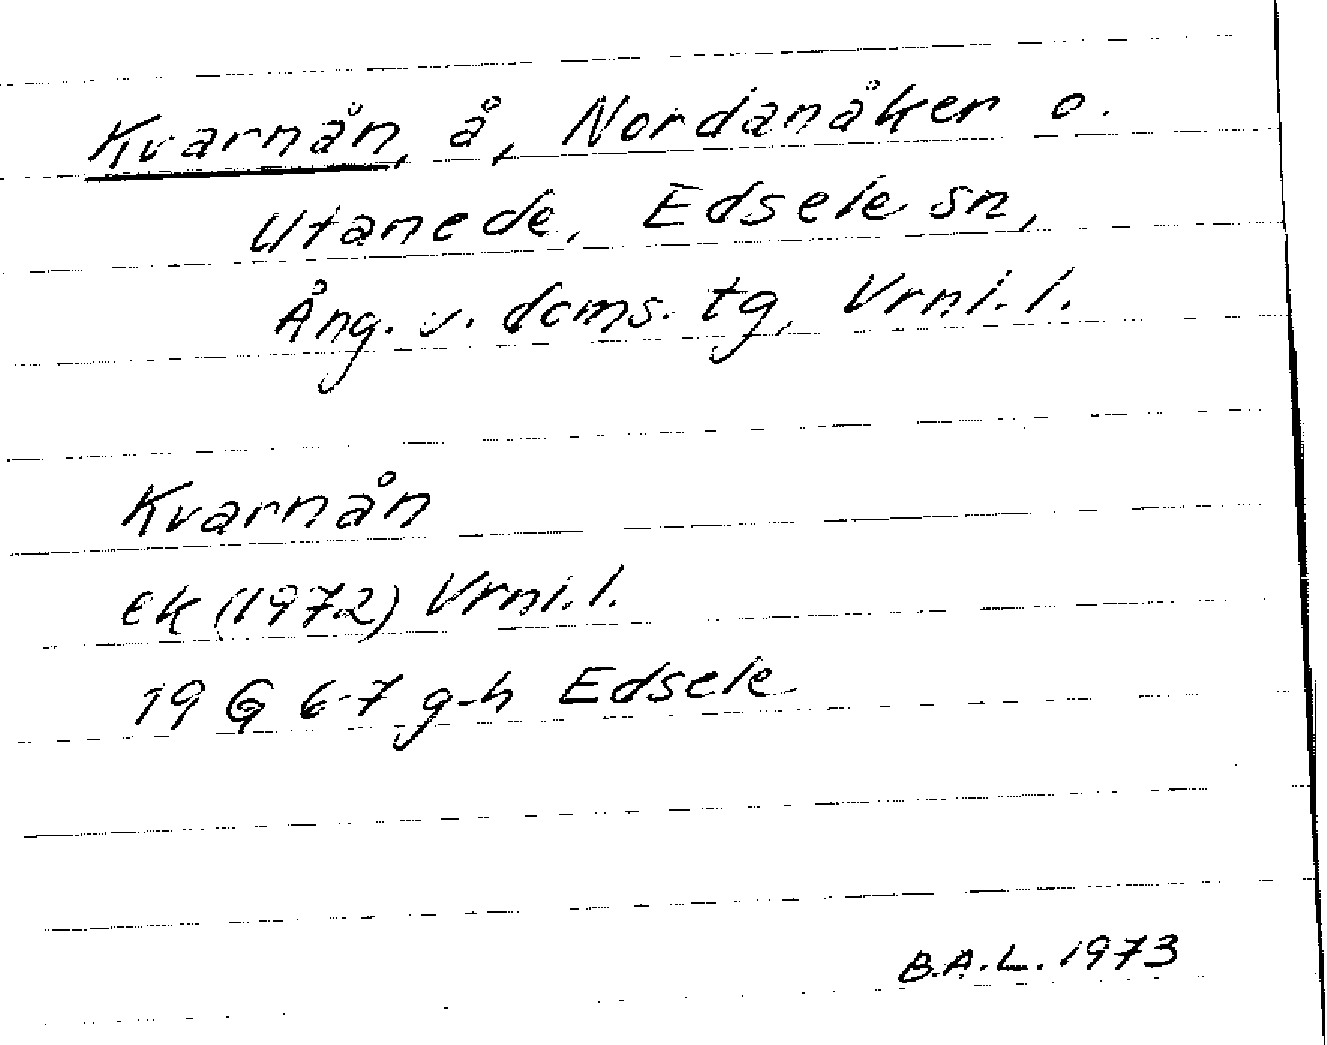 Kvarnån, å, Nordanåker o.
Utanede, Edsele sn,
Ång. v. doms. tg, Vrnl. l.
Kvarnån
ek (1972) Vrnl. l.
19 G 6-7 g-h Edsele
B.A.L. 1973